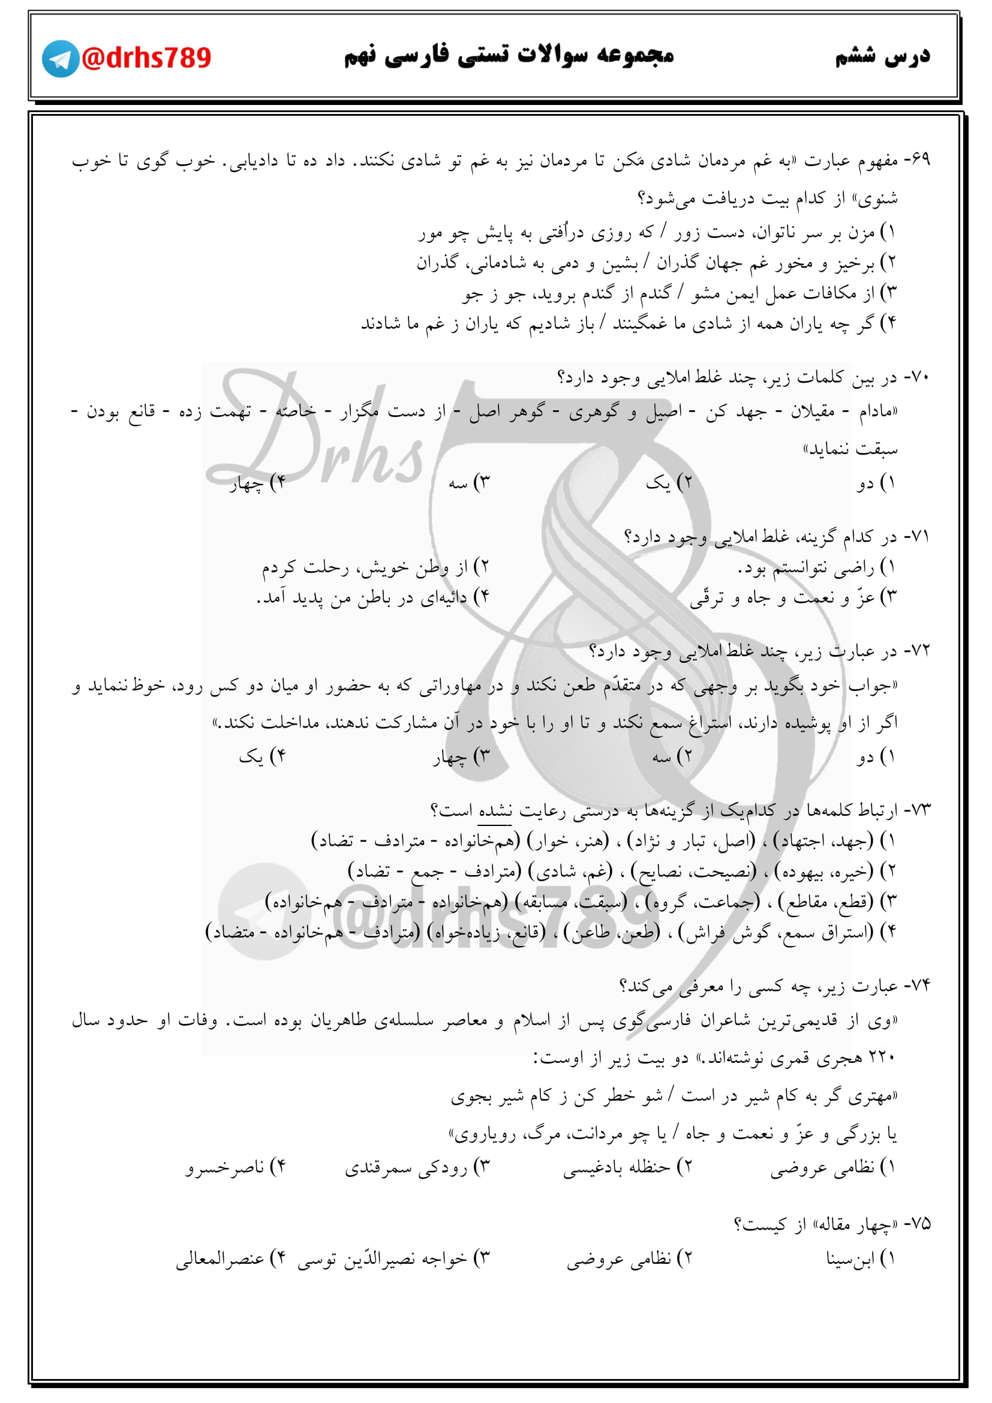 درس ششم
مجموعه سوالات تستی فارسی نهم
@drhs789
۶۹- مفهوم عبارت «به غم مردمان شادی مَکن تا مردمان نیز به غم تو شادی نکنند. داد ده تا دادیابی. خوب گوی تا خوب
شنوی» از کدام بیت دریافت می‌شود؟
۱) مزن بر سر ناتوان، دست زور / که روزی دراُفتی به پایش چو مور
۲) برخیز و مخور غم جهان گذران / بشین و دمی به شادمانی، گذران
۳) از مکافات عمل ایمن مشو / گندم از گندم بروید، جو ز جو
۴) گر چه یاران همه از شادی ما غمگینند / باز شادیم که یاران ز غم ما شادند
۷۰- در بین کلمات زیر، چند غلط املایی وجود دارد؟
«مادام - مقیلان - جهد کن - اصیل و گوهری - گوهر اصل - از دست مگزار - خاصّه - تهمت زده - قانع بودن -
سبقت ننماید»
۱) دو ۲) یک ۳) سه ۴) چهار
۷۱- در کدام گزینه، غلط املایی وجود دارد؟
۱) راضی نتوانستم بود. ۲) از وطن خویش، رحلت کردم
۳) عزّ و نعمت و جاه و ترقّی ۴) دائیه‌ای در باطن من پدید آمد.
۷۲- در عبارت زیر، چند غلط املایی وجود دارد؟
«جواب خود بگوید بر وجهی که در متقدّم طعن نکند و در مهاوراتی که به حضور او میان دو کس رود، خوظ ننماید و
اگر از او پوشیده دارند، استراغ سمع نکند و تا او را با خود در آن مشارکت ندهند، مداخلت نکند.»
۱) دو ۲) سه ۳) چهار ۴) یک
۷۳- ارتباط کلمه‌ها در کدام‌یک از گزینه‌ها به درستی رعایت نشده است؟
۱) (جهد، اجتهاد) ، (اصل، تبار و نژاد) ، (هنر، خوار) (هم‌خانواده - مترادف - تضاد)
۲) (خیره، بیهوده) ، (نصیحت، نصایح) ، (غم، شادی) (مترادف - جمع - تضاد)
۳) (قطع، مقاطع) ، (جماعت، گروه) ، (سبقت، مسابقه) (هم‌خانواده - مترادف - هم‌خانواده)
۴) (استراق سمع، گوش فراش) ، (طعن، طاعن) ، (قانع، زیاده‌خواه) (مترادف - هم‌خانواده - متضاد)
۷۴- عبارت زیر، چه کسی را معرفی می‌کند؟
«وی از قدیمی‌ترین شاعران فارسی‌گوی پس از اسلام و معاصر سلسله‌ی طاهریان بوده است. وفات او حدود سال
۲۲۰ هجری قمری نوشته‌اند.» دو بیت زیر از اوست:
«مهتری گر به کام شیر در است / شو خطر کن ز کام شیر بجوی
یا بزرگی و عزّ و نعمت و جاه / یا چو مردانت، مرگ، رویاروی»
۱) نظامی عروضی ۲) حنظله بادغیسی ۳) رودکی سمرقندی ۴) ناصرخسرو
۷۵- «چهار مقاله» از کیست؟
۱) ابن‌سینا ۲) نظامی عروضی ۳) خواجه نصیرالدّین توسی ۴) عنصرالمعالی
Drhs
789
@drhs789